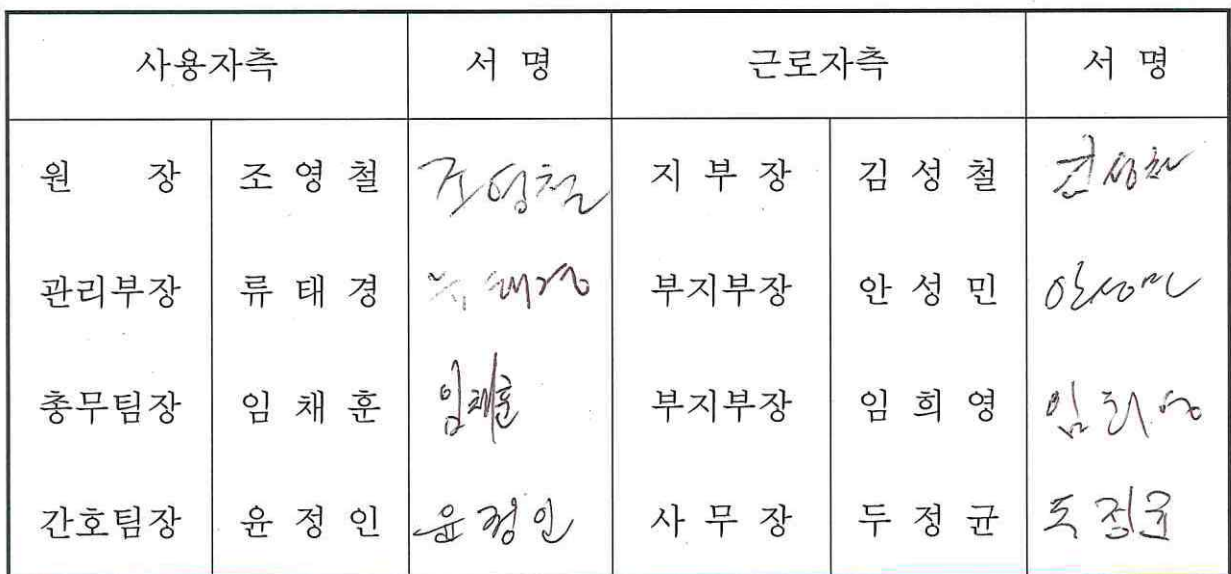 사용자측 서 명 근로자측 서 명
원 장 조 영 철 조영철 지 부 장 김 성 철
관리부장 류 태 경 부지부장 안 성 민 안성민
총무팀장 임 채 훈 임채훈 부지부장 임 희 영 임희영
간호팀장 윤 정 인 윤정인 사 무 장 두 정 균 두정균